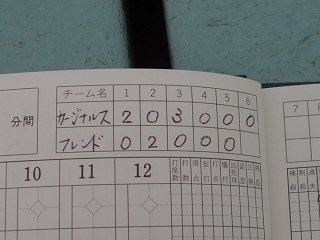 チーム名 1 2 3 4 5 6
カージナルス 2 0 3 0 0 0
分間 フレンド 0 2 0 0 0
7 8
10 11 12 打席数 打数 得点 安打 打点 犠打 四死球 盗塁 三振 残塁
補殺 刺殺 過失